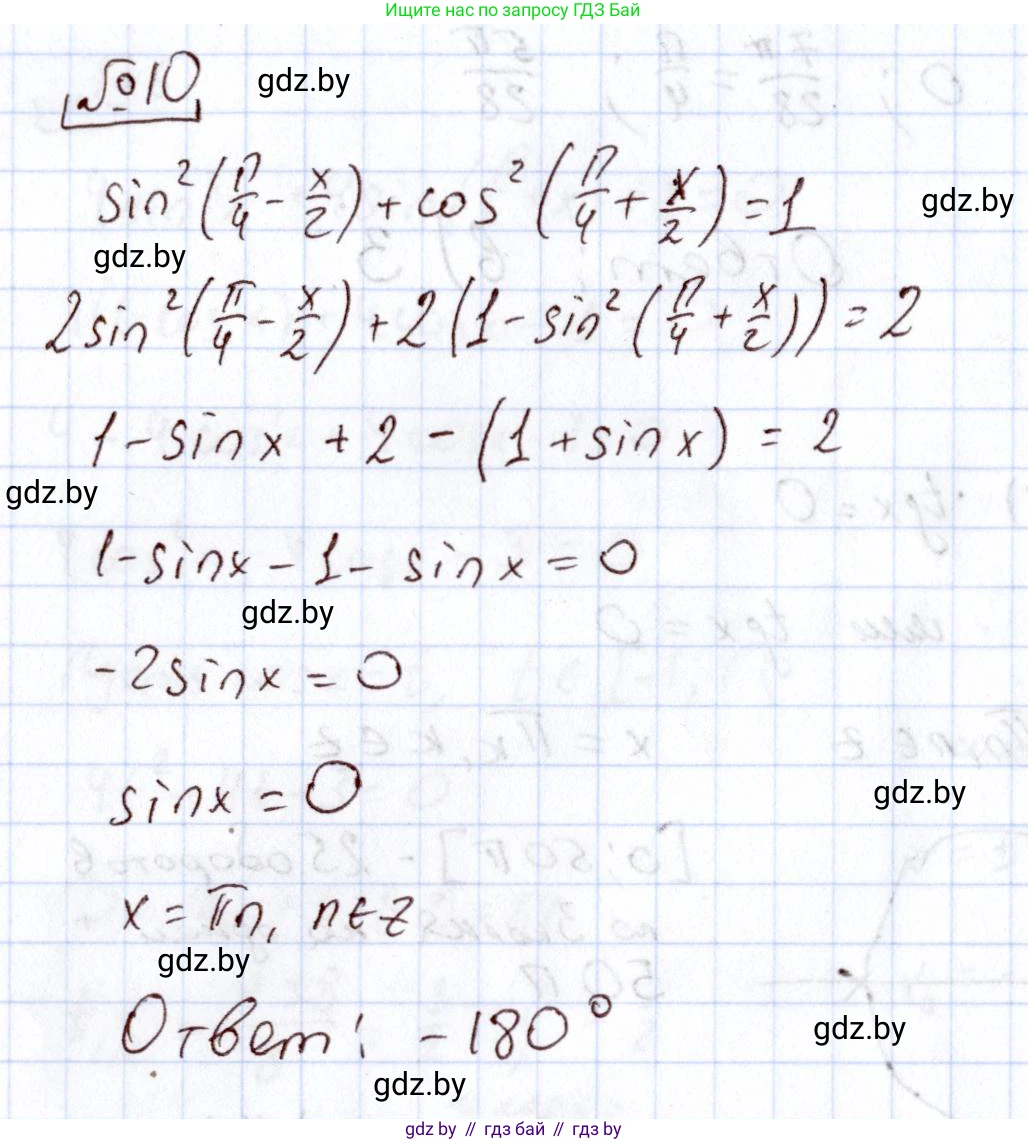 Ищите нас по запросу ГДЗ Бай
№10
gdz.by
sin²(π/4 - x/2) + cos²(π/4 + x/2) = 1
gdz.by
gdz.by
2sin²(π/4 - x/2) + 2(1 - sin²(π/4 + x/2)) = 2
1 - sinx + 2 - (1 + sinx) = 2
gdz.by
1 - sinx - 1 - sinx = 0
gdz.by
-2sinx = 0
sinx = 0
gdz.by
x = πn, n∈z
gdz.by
Ответ: -180°
gdz.by
gdz.by
gdz.by // гдз бай // gdz.by